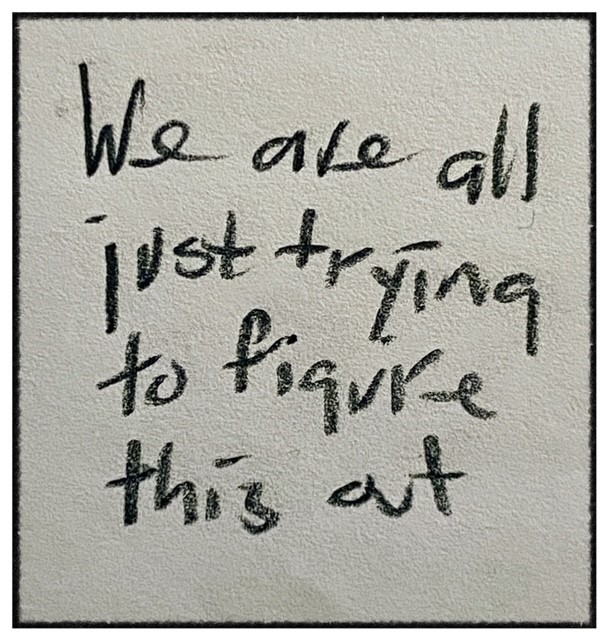 We are all
just trying
to figure
this out